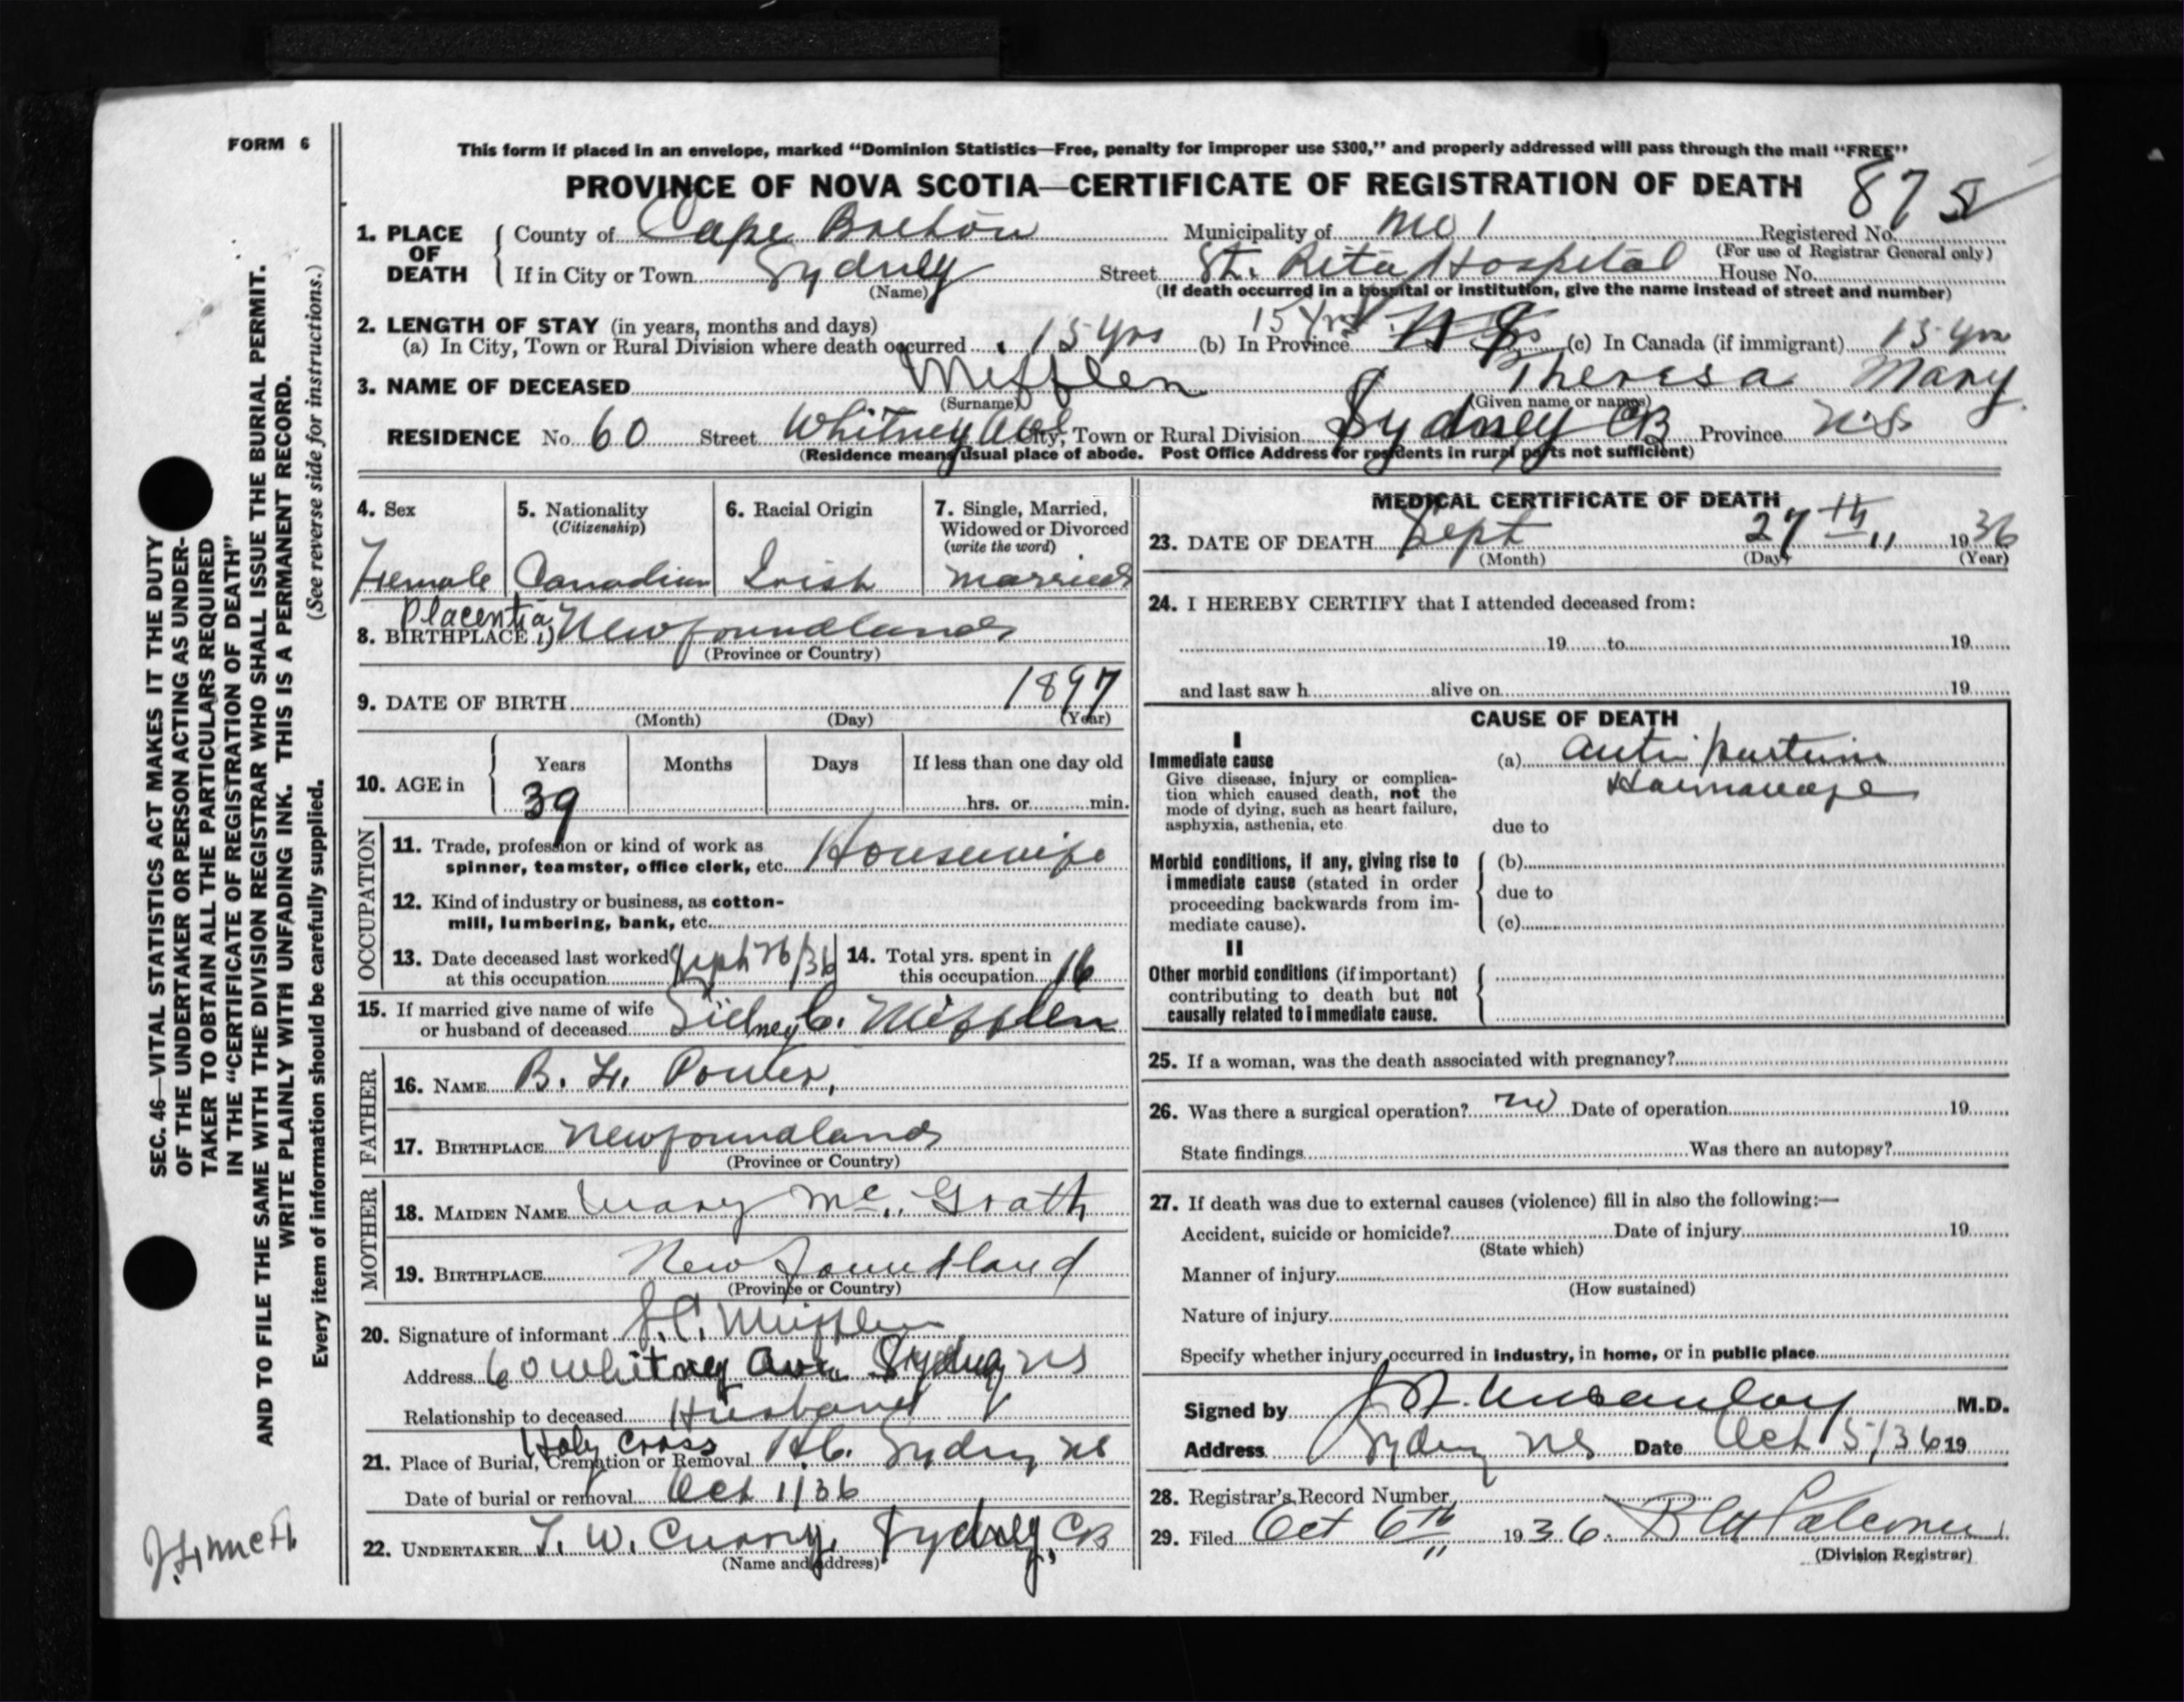 FORM 6
This form if placed in an envelope, marked “Dominion Statistics—Free, penalty for improper use $300,” and properly addressed will pass through the mail “FREE”
PROVINCE OF NOVA SCOTIA—CERTIFICATE OF REGISTRATION OF DEATH 875
1. PLACE OF DEATH County of Cape Breton Municipality of No 1 Registered No.
(For use of Registrar General only)
If in City or Town Sydney Street St. Rita Hospital House No.
(Name) (If death occurred in a hospital or institution, give the name instead of street and number)
2. LENGTH OF STAY (in years, months and days)
(a) In City, Town or Rural Division where death occurred 15 yrs (b) In Province 15 yrs (c) In Canada (if immigrant) 15 yrs
3. NAME OF DECEASED Mifflen Theresa Mary
(Surname) (Given name or names)
RESIDENCE No. 60 Street Whitney Ave City, Town or Rural Division Sydney CB Province N.S.
(Residence means usual place of abode. Post Office Address for residents in rural parts not sufficient)
4. Sex Female
5. Nationality (Citizenship) Canadian
6. Racial Origin Irish
7. Single, Married, Widowed or Divorced (write the word) Married
8. BIRTHPLACE Placentia, Newfoundland
(Province or Country)
9. DATE OF BIRTH 1897
(Month) (Day) (Year)
10. AGE in Years Months Days If less than one day old
39 hrs. or min.
OCCUPATION
11. Trade, profession or kind of work as spinner, teamster, office clerk, etc. Housewife
12. Kind of industry or business, as cotton-mill, lumbering, bank, etc.
13. Date deceased last worked at this occupation Sept 26/36
14. Total yrs. spent in this occupation 16
15. If married give name of wife or husband of deceased Sidney C. Mifflen
FATHER
16. NAME B. H. Power,
17. BIRTHPLACE Newfoundland
(Province or Country)
MOTHER
18. MAIDEN NAME Mary Mc Grath
19. BIRTHPLACE Newfoundland
(Province or Country)
20. Signature of informant S.C. Mifflen
Address 60 Whitney Ave Sydney NS
Relationship to deceased Husband
21. Place of Burial, Cremation or Removal Holy Cross H.C. Sydney NS
Date of burial or removal Oct 1/36
22. UNDERTAKER T. W. Curry, Sydney, CB
(Name and address)
MEDICAL CERTIFICATE OF DEATH
23. DATE OF DEATH Sept 27th 1936
(Month) (Day) (Year)
24. I HEREBY CERTIFY that I attended deceased from:
19 to 19
and last saw h alive on 19
CAUSE OF DEATH
I
Immediate cause
Give disease, injury or complication which caused death, not the mode of dying, such as heart failure, asphyxia, asthenia, etc
(a) Anti partum
Haemorrage
due to
Morbid conditions, if any, giving rise to immediate cause (stated in order proceeding backwards from immediate cause).
(b)
due to
(c)
II
Other morbid conditions (if important) contributing to death but not causally related to immediate cause.
25. If a woman, was the death associated with pregnancy?
26. Was there a surgical operation? no Date of operation 19
State findings Was there an autopsy?
27. If death was due to external causes (violence) fill in also the following:—
Accident, suicide or homicide? Date of injury 19
(State which)
Manner of injury
(How sustained)
Nature of injury
Specify whether injury occurred in industry, in home, or in public place
Signed by M.D.
Address Sydney NS Date Oct 5/36 19
28. Registrar's Record Number
29. Filed Oct 6th 1936.
(Division Registrar)
SEC. 46—VITAL STATISTICS ACT MAKES IT THE DUTY
OF THE UNDERTAKER OR PERSON ACTING AS UNDER-
TAKER TO OBTAIN ALL THE PARTICULARS REQUIRED
IN THE “CERTIFICATE OF REGISTRATION OF DEATH”
AND TO FILE THE SAME WITH THE DIVISION REGISTRAR WHO SHALL ISSUE THE BURIAL PERMIT.
WRITE PLAINLY WITH UNFADING INK. THIS IS A PERMANENT RECORD.
Every item of information should be carefully supplied. (See reverse side for instructions.)